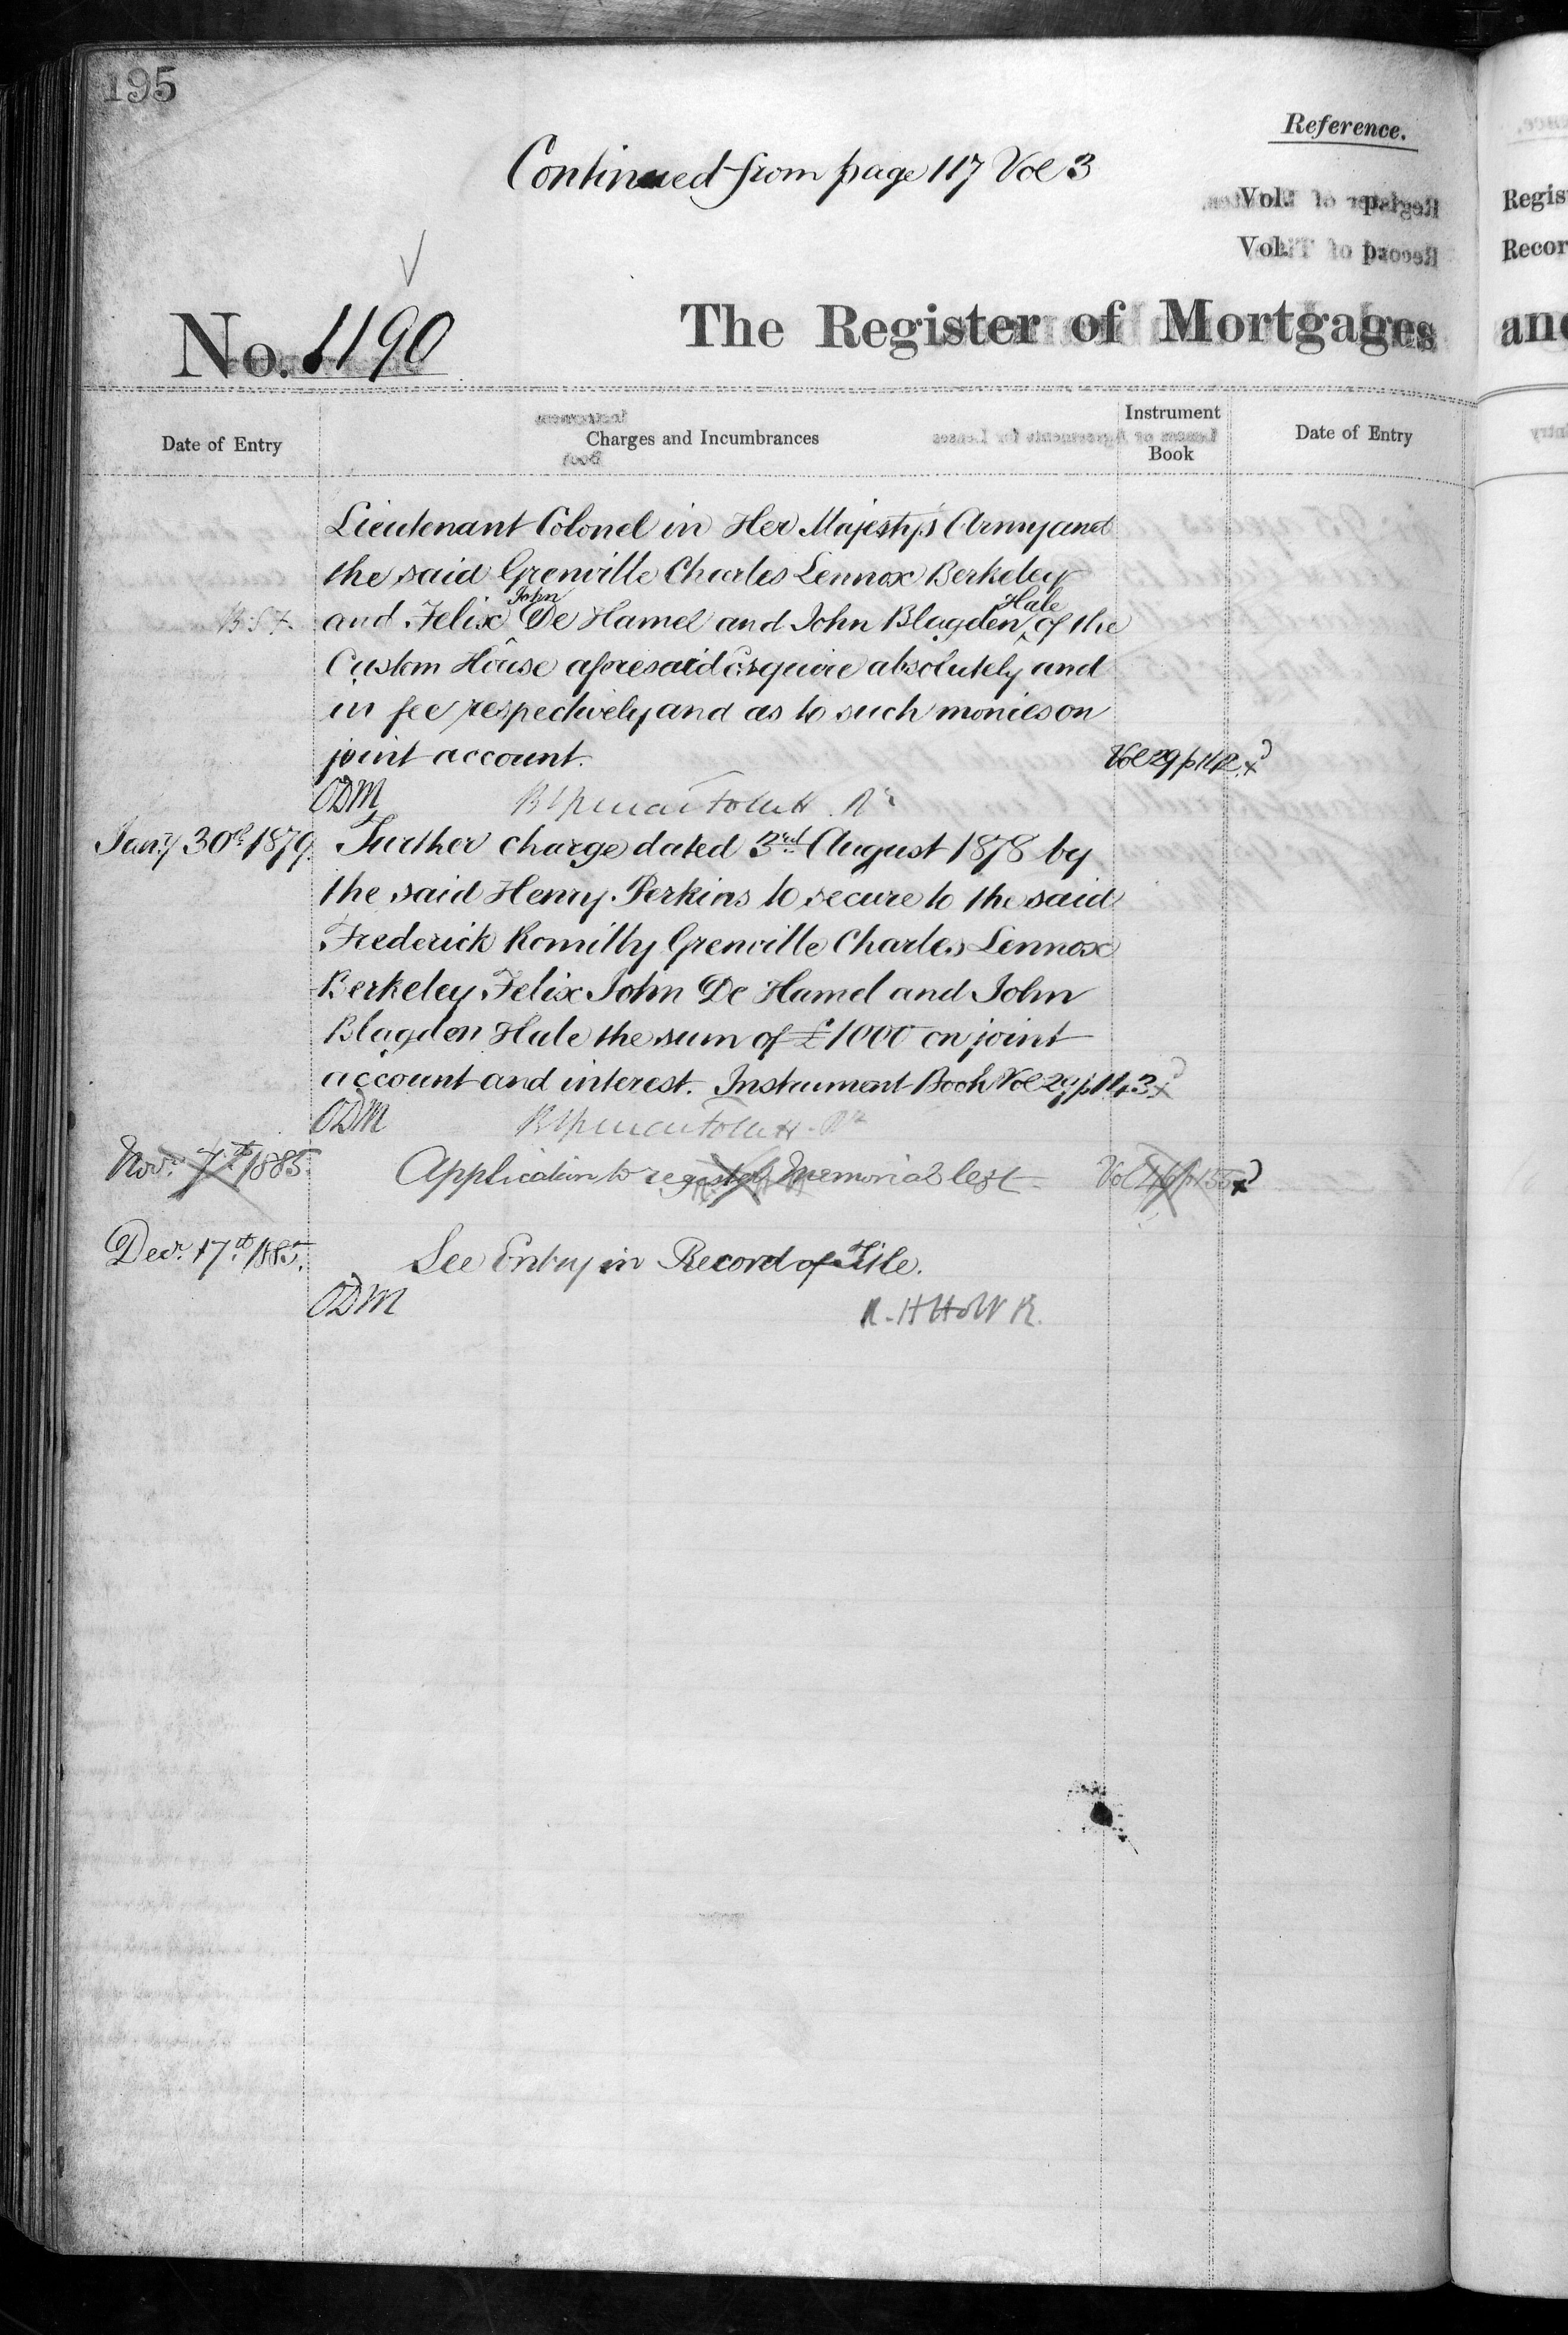 195
Reference.
Continued from page 117 Vol 3
Vol. p.
Vol. p.
No. 1190
The Register of Mortgages
Date of Entry
Charges and Incumbrances
Instrument
Book
Date of Entry
Lieutenant Colonel in Her Majesty's Army and
the said Grenville Charles Lennox Berkeley
and Felix John De Hamel and John Blagden Hale of the
Custom House aforesaid Esquire absolutely and
in fee respectively and as to such monies on
joint account. Vol 29 p 142
ODM
Jany 30th 1879. Further charge dated 3rd August 1878 by
the said Henry Perkins to secure to the said
Frederick Romilly Grenville Charles Lennox
Berkeley Felix John De Hamel and John
Blagden Hale the sum of £1000 on joint
account and interest. Instrument Book Vol 29 p 143
ODM
Novr. 7th 1885. Application to register Memorial left
Decr. 17th 1885. See Entry in Record of Title.
ODM
Regis
Recor
and